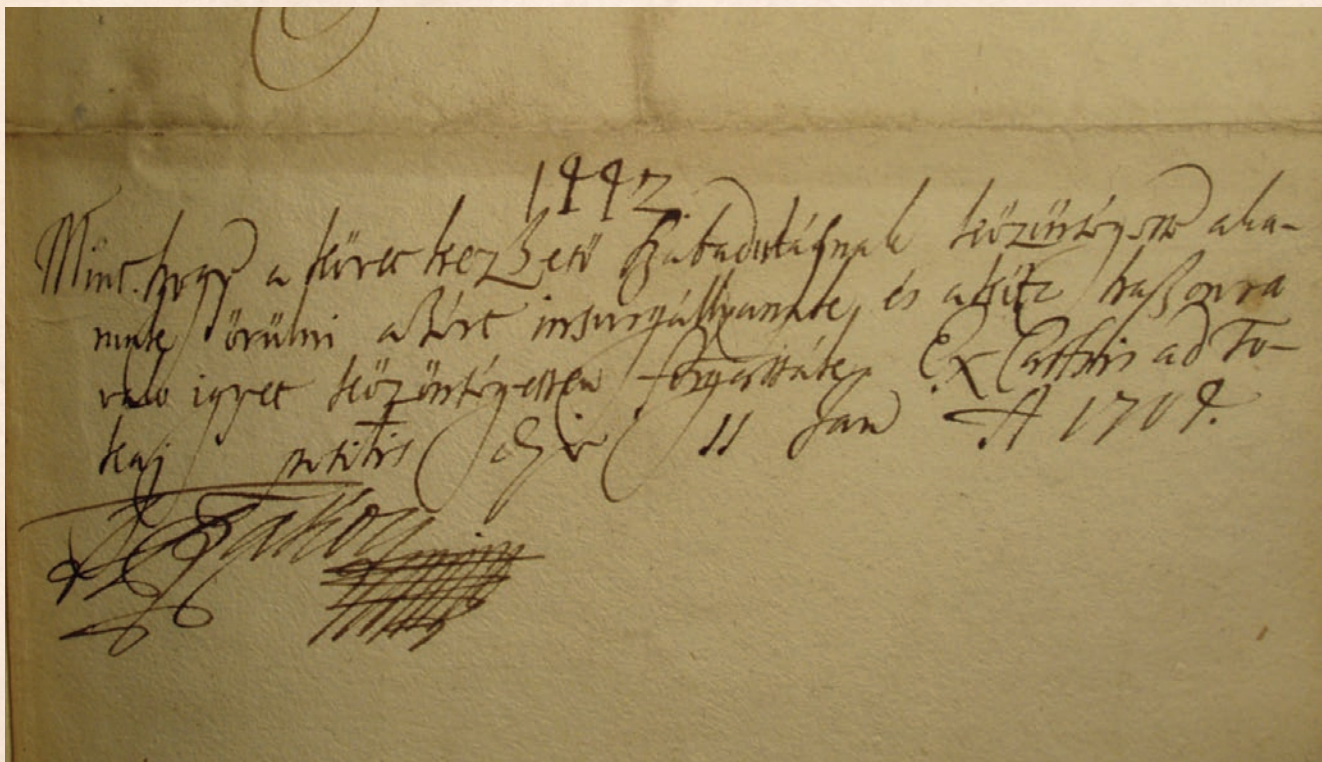 1442
Mint hogy a követ kezhető Szabadságnak közönségessen aka-
nnak örülni azért insurgállyanak, és a kitz haszonra
való igyet közönségessen forgassák. Ex Castris ad To-
kaj positis die 11 Jan A 1704.